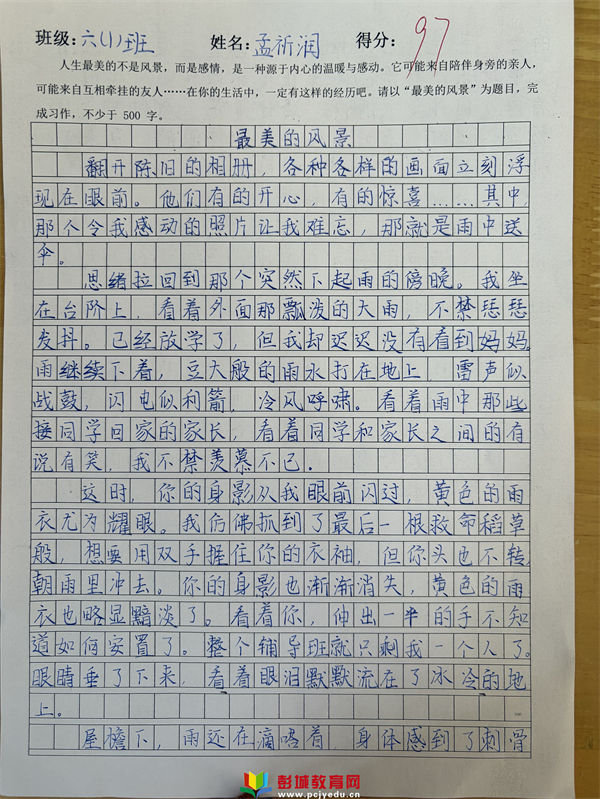 班级：六（1）班 姓名：孟祈润 得分：97
人生最美的不是风景，而是感情，是一种源于内心的温暖与感动。它可能来自陪伴身旁的亲人，
可能来自互相牵挂的友人……在你的生活中，一定有这样的经历吧。请以“最美的风景”为题目，完
成习作，不少于 500 字。
最美的风景
翻开陈旧的相册，各种各样的画面立刻浮
现在眼前。他们有的开心，有的惊喜……其中，
那个令我感动的照片让我难忘，那就是雨中送
伞。
思绪拉回到那个突然下起雨的傍晚。我坐
在台阶上，看着外面那瓢泼的大雨，不禁瑟瑟
发抖。已经放学了，但我却迟迟没有看到妈妈。
雨继续下着，豆大般的雨水打在地上，雷声似
战鼓，闪电似利箭，冷风呼啸。看着雨中那些
接同学回家的家长，看着同学和家长之间的有
说有笑，我不禁羡慕不已。
这时，你的身影从我眼前闪过，黄色的雨
衣尤为耀眼。我仿佛抓到了最后一根救命稻草
般，想要用双手握住你的衣袖，但你头也不转，
朝雨里冲去。你的身影也渐渐消失，黄色的雨
衣也略显黯淡了。看着你，伸出一半的手不知
道如何安置了。整个辅导班就只剩我一个人了。
眼睛垂了下来，看着眼泪默默流在了冰冷的地
上。
屋檐下，雨还在滴嗒着，身体感到了刺骨
彭城教育网
www.pcjyedu.cn